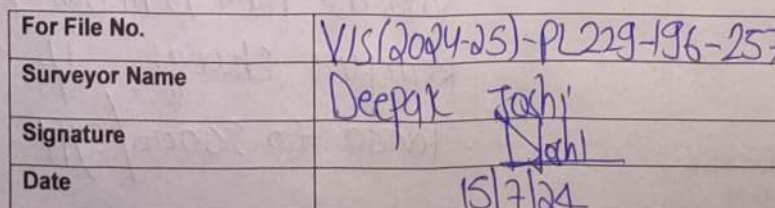 For File No. VIS(2024-25)-PL229-196-257
Surveyor Name Deepak Joshi
Signature DJoshi
Date 15/7/24